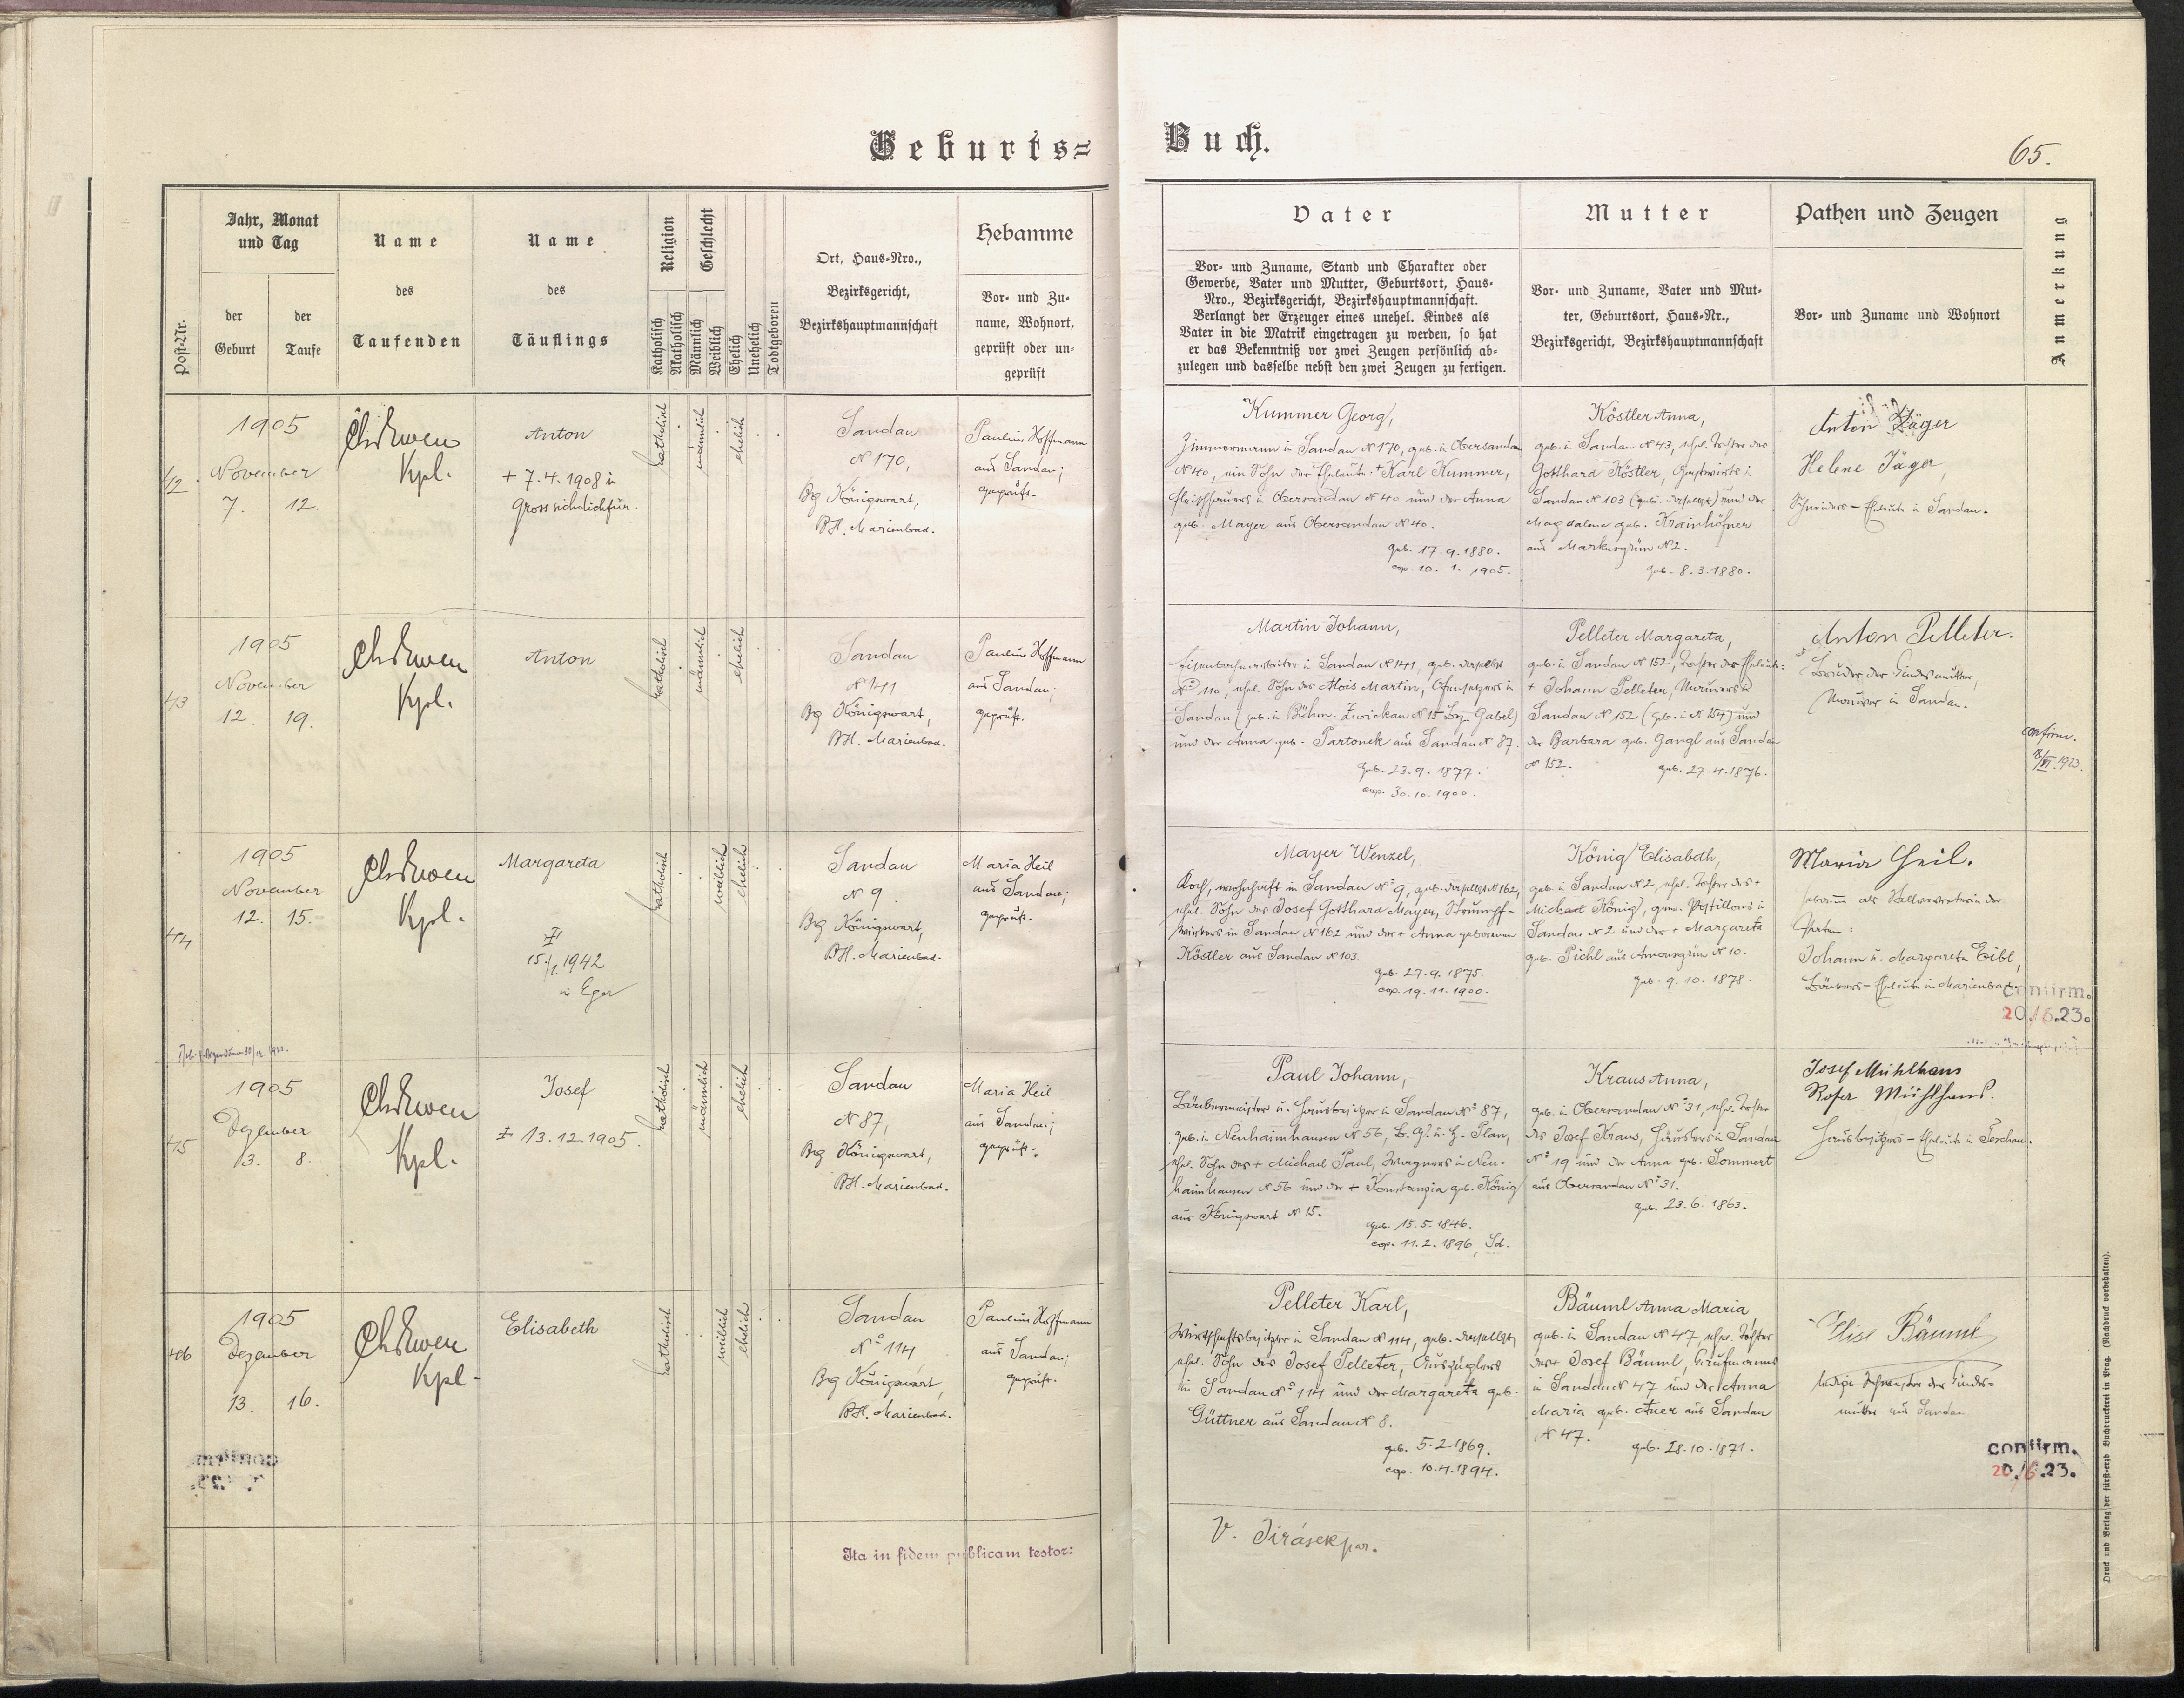 Geburts=
Buch.
65.
Post-Nr.
Jahr, Monat
und Tag
der
Geburt
der
Taufe
Name
des
Taufenden
Name
des
Täuflings
Religion
Katholisch
Akatholisch
Geschlecht
Männlich
Weiblich
Ehelich
Unehelich
Todtgeboren
Ort, Haus-Nro.,
Bezirksgericht,
Bezirkshauptmannschaft
Hebamme
Vor- und Zu-
name, Wohnort,
geprüft oder un-
geprüft
Vater
Vor- und Zuname, Stand und Charakter oder
Gewerbe, Vater und Mutter, Geburtsort, Haus-
Nro., Bezirksgericht, Bezirkshauptmannschaft.
Verlangt der Erzeuger eines unehel. Kindes als
Vater in die Matrik eingetragen zu werden, so hat
er das Bekenntniß vor zwei Zeugen persönlich ab-
zulegen und dasselbe nebst den zwei Zeugen zu fertigen.
Mutter
Vor- und Zuname, Vater und Mut-
ter, Geburtsort, Haus-Nr.,
Bezirksgericht, Bezirkshauptmannschaft
Pathen und Zeugen
Vor- und Zuname und Wohnort
Anmerkung
42
1905
November
7. 12.
Kpl.
Anton
+ 7.4.1908 in
Gross sichdichfür.
katholisch
männlich
ehelich
Sandau
N 170,
Bg Königswart,
BH. Marienbad.
Paulina Hoffmann
aus Sandau;
geprüft.
Kummer Georg,
Zimmermann in Sandau N 170, geb. in Obersandau
N 40, ein Sohn der Eheleute: + Karl Kummer,
Fleischhauers in Obersandau N 40 und der Anna
geb. Mayer aus Obersandau N 40.
geb. 17.9.1880.
cop. 10. 1. 1905.
Köstler Anna,
geb. in Sandau N 43, ehel. Tochter des
Gotthard Köstler, Gastwirts in
Sandau N 103 (geb. daselbst) und der
Magdalena geb. Krainhöfner
aus Markusgrün N 2.
geb. 8.3.1880.
Anton Jäger
Helene Jäger,
Schneiders-Eheleute in Sandau.
43
1905
November
12. 19.
Kpl.
Anton
katholisch
männlich
ehelich
Sandau
N 141
Bg Königswart,
BH. Marienbad.
Paulina Hoffmann
aus Sandau;
geprüft.
Martin Johann,
Eisenbahnarbeiter in Sandau N 141, geb. daselbst
N 110, ehel. Sohn des Alois Martin, Ofensetzers in
Sandau (geb. in Böhm. Zwickau N 15 Bez. Gabel)
und der Anna geb. Partonek aus Sandau N 87.
geb. 23.9.1877.
cop. 30.10.1900.
Pelleter Margareta,
geb. in Sandau N 152, Tochter der Eheleute:
+ Johann Pelleter, Maurers in
Sandau N 152 (geb. in N 154) und
der Barbara geb. Gangl aus Sandau
N 152. geb. 27.4.1876.
Anton Pelleter.
Bruder der Kindesmutter,
Maurer in Sandau.
confirm.
1923.
44
1905
November
12. 15.
Kpl.
Margareta
15./1. 1942
in Eger
katholisch
weiblich
ehelich
Sandau
N 9
Bg Königswart,
BH. Marienbad.
Maria Heil
aus Sandau;
geprüft.
Mayer Wenzel,
Koch, wohnhaft in Sandau N 9, geb. daselbst N 162,
ehel. Sohn des Josef Gotthard Mayer, Strumpf-
wirkers in Sandau N 162 und der + Anna geborenen
Köstler aus Sandau N 103.
geb. 27.9.1875.
cop. 19.11.1900.
König Elisabeth,
geb. in Sandau N 2, ehel. Tochter des +
Michael König, gew. Postillons in
Sandau N 2 und der + Margareta
geb. Pichl aus Amonsgrün N 10.
geb. 9.10.1878.
Maria Heil.
Hebamme als Stellvertreterin der
Pathen:
Johann u. Margareta Eibl,
Bäckers-Eheleute in Marienbad.
confirm.
20./6.23.
45
1905
Dezember
3. 8.
Kpl.
Josef
+ 13.12.1905.
katholisch
männlich
ehelich
Sandau
N 87,
Bg Königswart,
BH. Marienbad.
Maria Heil
aus Sandau;
geprüft.
Paul Johann,
Bäckermeister u. Hausbesitzer in Sandau N 87,
geb. in Neuhaimhausen N 56, B.G. u. H. Plan,
ehel. Sohn des + Michael Paul, Wagners in Neu-
haimhausen N 56 und der + Konstanzia geb. König
aus Königswart N 15.
geb. 15.5.1846.
cop. 11.2.1896, Sd.
Kraus Anna,
geb. in Obersandau N 31, ehel. Tochter
des Josef Kraus, Häuslers in Sandau
N 19 und der Anna geb. Sommert
aus Obersandau N 31.
geb. 23.6.1863.
Josef Mühlhans
Rosa Mühlhans.
Hausbesitzers-Eheleute in Teschau.
46
1905
Dezember
13. 16.
Kpl.
Elisabeth
katholisch
weiblich
ehelich
Sandau
No 114
Bg Königswart,
BH. Marienbad.
Paulina Hoffmann
aus Sandau;
geprüft.
Pelleter Karl,
Wirtschaftsbesitzer in Sandau N 114, geb. daselbst,
ehel. Sohn des Josef Pelleter, Auszüglers
in Sandau N 114 und der Margareta geb.
Güttner aus Sandau N 8.
geb. 5.2.1869.
cop. 10.4.1894.
Bäuml Anna Maria
geb. in Sandau N 47, ehel. Tochter
des + Josef Bäuml, Kaufmanns
in Sandau N 47 und der Anna
Maria geb. Auer aus Sandau
N 47.
geb. 28.10.1871.
Elise Bäuml
ledige Schwester der Kindes-
mutter aus Sandau
confirm.
20./6.23.
Ita in fidem publicam testor:
V. Jirásek par.
Druck und Verlag der fürst-erzb Buchdruckerei in Prag. (Nachdruck vorbehalten).